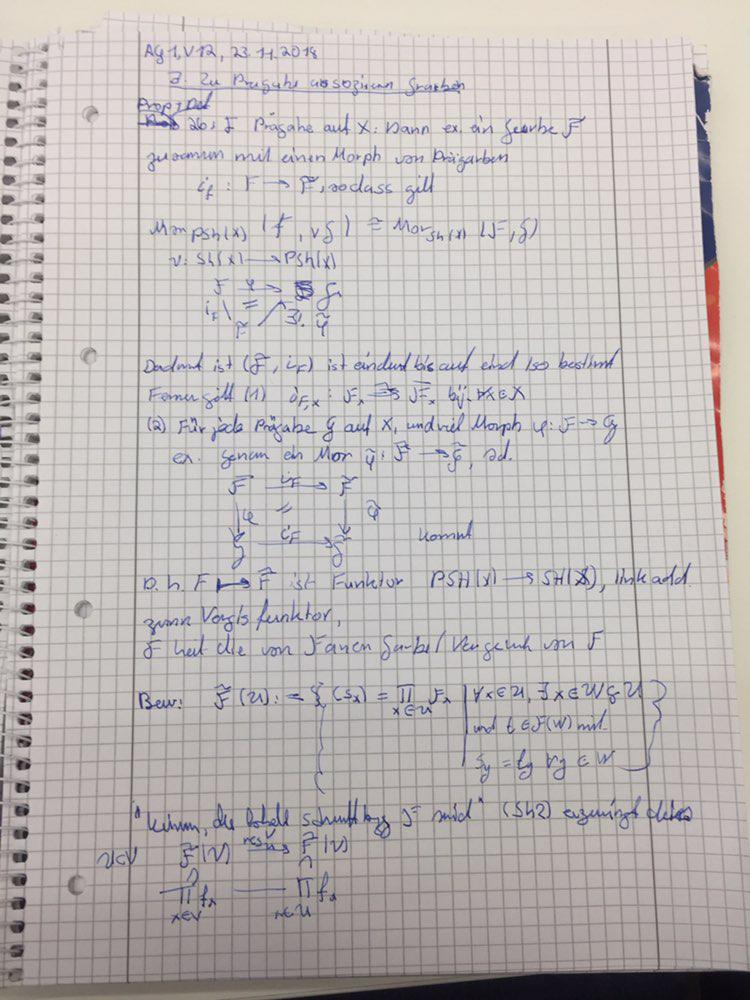 AG1, V12, 23.11.2018
3. Zu Prägabe assoziieren Graben
Prop+Def
26: F Prägabe auf X. Dann ex. ein Gearbe F̃
zusammen mit einen Morph von Prägarben
i_f : F → F̃, sodass gilt
Mor_PSh(X) (F, vG) ≅ Mor_Sh(X) (F̃, G)
v: Sh(X) → PSh(X)
F φ→ G
i_F = ∃! φ̃
F̃
Dadurch ist (F̃, i_F) ist eindeut bis auf eind Iso bestimt
Ferner gilt (1) i_F,x : F_x → F̃_x bij. ∀x∈X
(2) Für jede Prägabe G auf X, und viel Morph φ: F → G
ex. genau ein Mor φ̃: F̃ → G̃, sd.
F i_F→ F̃
↓φ = ↓φ̃
G i_F→ G̃ komut
D.h. F ↦ F̃ ist Funktor PSH(X) → SH(X), link add.
zum Vergissfunktor,
F heit die von F Garbe / von F
Bew: F̃(U) := { (s_x) = ∏_{x∈U} F_x | ∀x∈U, ∃ x∈W⊆U
und t∈F(W) mit
s_y = t_y ∀y∈W }
(Sh2) erzwingt dies
U⊂V F̃(V) res→ F̃(V)
∩ ∩
∏_{x∈V} f_x — ∏_{x∈U} f_x